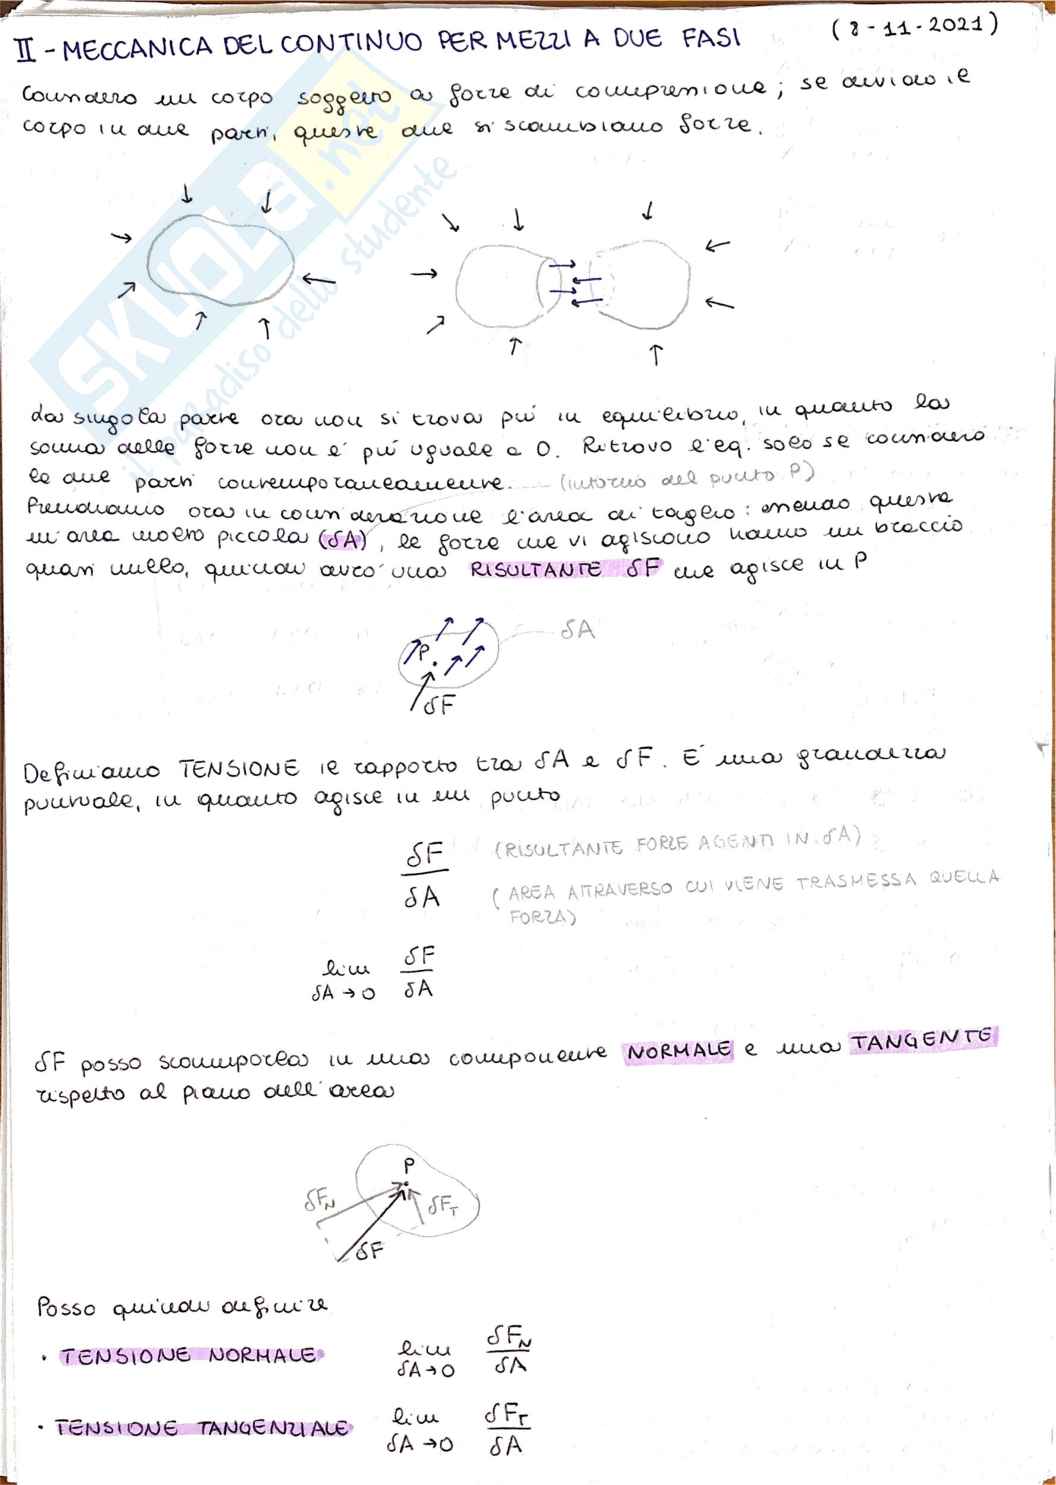 II - MECCANICA DEL CONTINUO PER MEZZI A DUE FASI
(8-11-2021)
Considero un corpo soggetto a forze di compressione; se divido il
corpo in due parti, queste due si scambiano forze.
SKUOLA.net
il paradiso dello studente
La singola parte ora non si trova più in equilibrio, in quanto la
somma delle forze non è più uguale a 0. Ritrovo l'eq. solo se considero
le due parti contemporaneamente. (intorno del punto P)
Prendiamo ora in considerazione l'area di taglio: essendo questa
un'area molto piccola (δA), le forze che vi agiscono hanno un braccio
quasi nullo, quindi avrò una RISULTANTE δF che agisce in P
δA
P
δF
Definiamo TENSIONE il rapporto tra δA e δF. È una grandezza
puntuale, in quanto agisce in un punto
δF (RISULTANTE FORZE AGENTI IN δA)
δA (AREA ATTRAVERSO CUI VIENE TRASMESSA QUELLA
FORZA)
lim δF
δA → 0 δA
δF posso scomporla in una componente NORMALE e una TANGENTE
rispetto al piano dell'area
P
δF_N
δF_T
δF
Posso quindi definire
· TENSIONE NORMALE lim δF_N
δA → 0 δA
· TENSIONE TANGENZIALE lim δF_T
δA → 0 δA